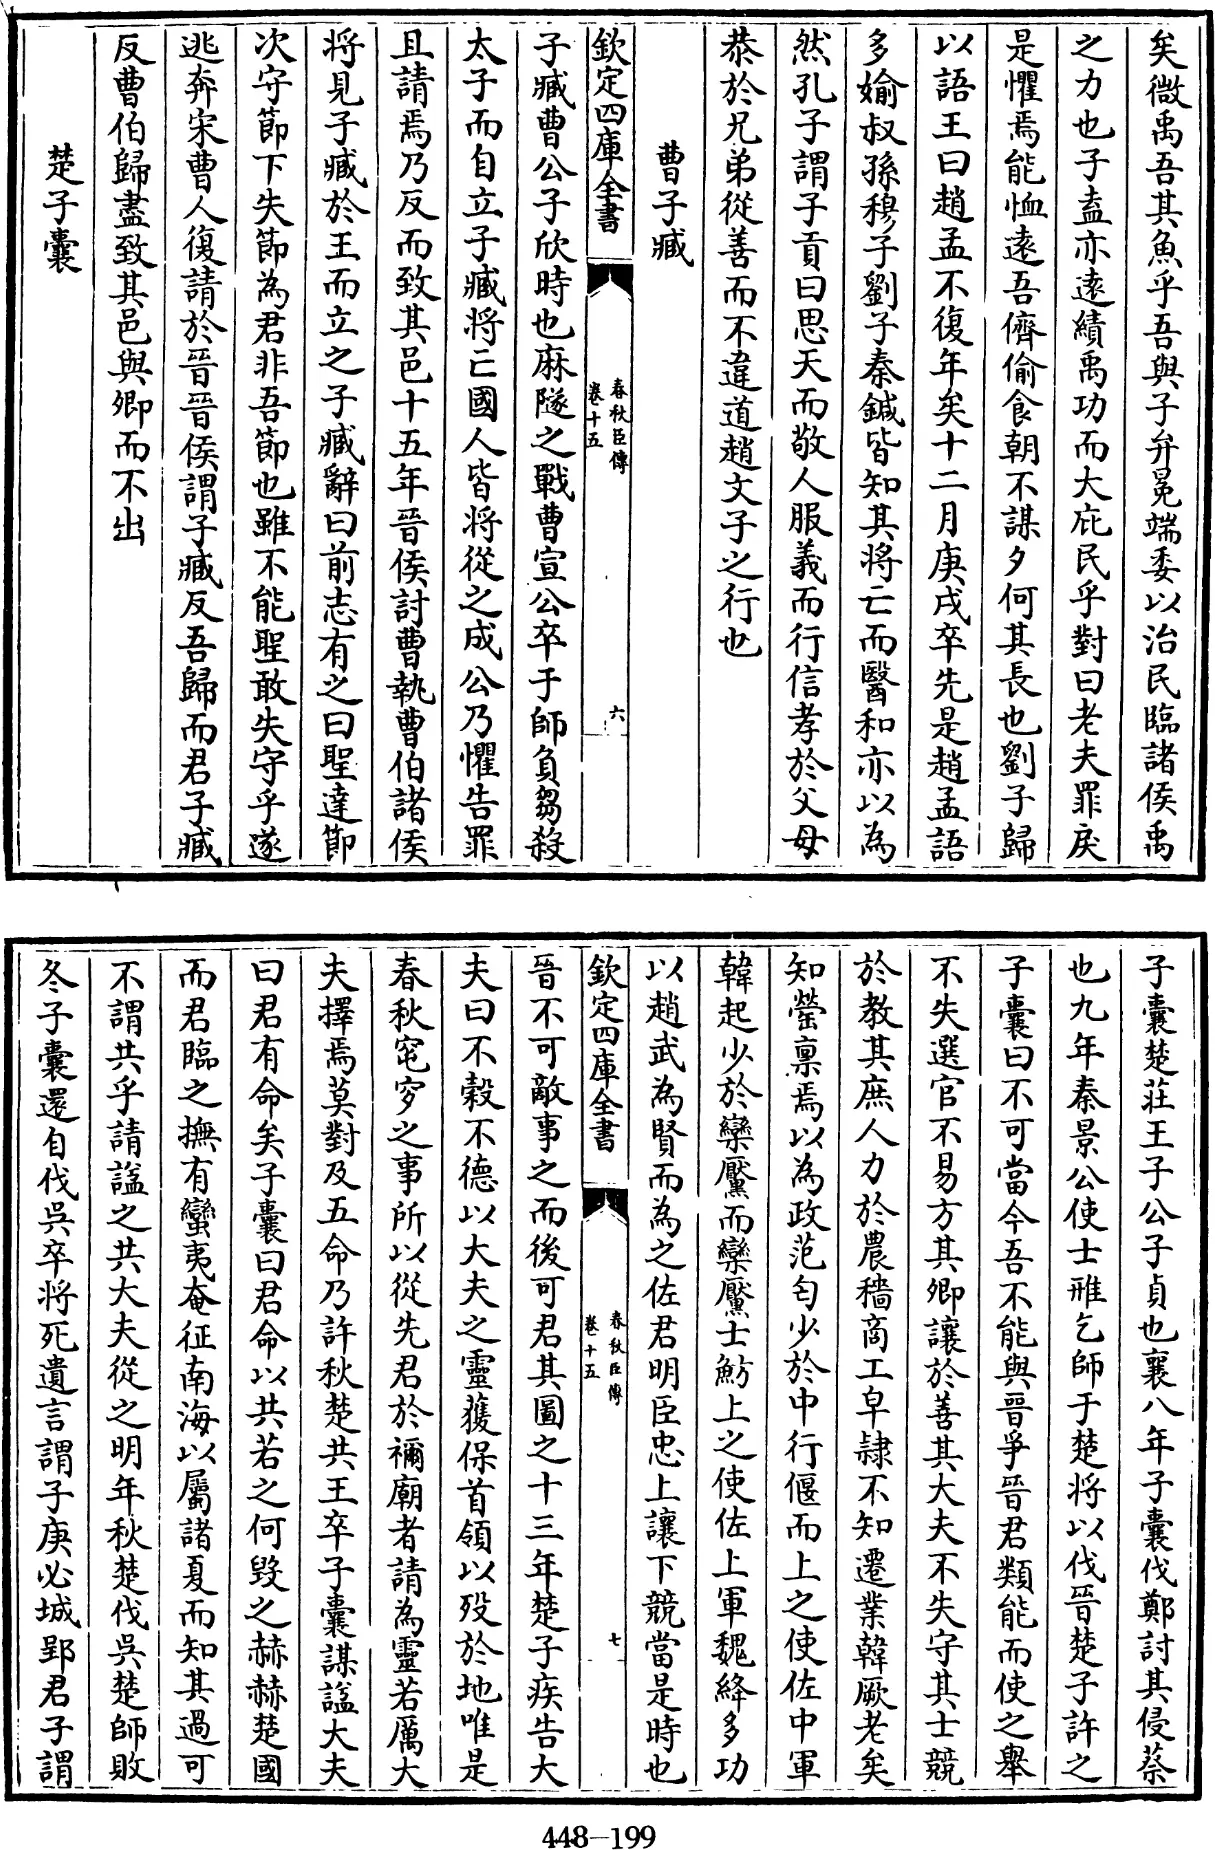 矣微禹吾其魚乎吾與子弁冕端委以治民臨諸侯禹
之力也子盍亦遠績禹功而大庇民乎對曰老夫罪戾
是懼焉能恤遠吾儕偷食朝不謀夕何其長也劉子歸
以語王曰趙孟不復年矣十二月庚戌卒先是趙孟語
多媮叔孫穆子劉子秦鍼皆知其將亡而醫和亦以為
然孔子謂子貢曰思天而敬人服義而行信孝於父母
恭於兄弟從善而不違道趙文子之行也
曹子臧
欽定四庫全書
春秋臣傳
卷十五
六
子臧曹公子欣時也麻隧之戰曹宣公卒于師負芻殺
太子而自立子臧將亡國人皆將從之成公乃懼告罪
且請焉乃反而致其邑十五年晉侯討曹執曹伯諸侯
將見子臧於王而立之子臧辭曰前志有之曰聖達節
次守節下失節為君非吾節也雖不能聖敢失守乎遂
逃奔宋曹人復請於晉晉侯謂子臧反吾歸而君子臧
反曹伯歸盡致其邑與卿而不出
楚子囊
子囊楚莊王子公子貞也襄八年子囊伐鄭討其侵蔡
也九年秦景公使士雃乞師于楚將以伐晉楚子許之
子囊曰不可當今吾不能與晉爭晉君類能而使之舉
不失選官不易方其卿讓於善其大夫不失守其士競
於教其庶人力於農穡商工皁隷不知遷業韓厥老矣
知罃禀焉以為政范匄少於中行偃而上之使佐中軍
韓起少於欒黶而欒黶士魴上之使佐上軍魏絳多功
以趙武為賢而為之佐君明臣忠上讓下競當是時也
欽定四庫全書
春秋臣傳
卷十五
七
晉不可敵事之而後可君其圖之十三年楚子疾告大
夫曰不穀不德以大夫之靈獲保首領以殁於地唯是
春秋窀穸之事所以從先君於禰廟者請為靈若厲大
夫擇焉莫對及五命乃許秋楚共王卒子囊謀諡大夫
曰君有命矣子囊曰君命以共若之何毁之赫赫楚國
而君臨之撫有蠻夷奄征南海以屬諸夏而知其過可
不謂共乎請諡之共大夫從之明年秋楚伐吳楚師敗
冬子囊還自伐吳卒將死遺言謂子庚必城郢君子謂
448-199